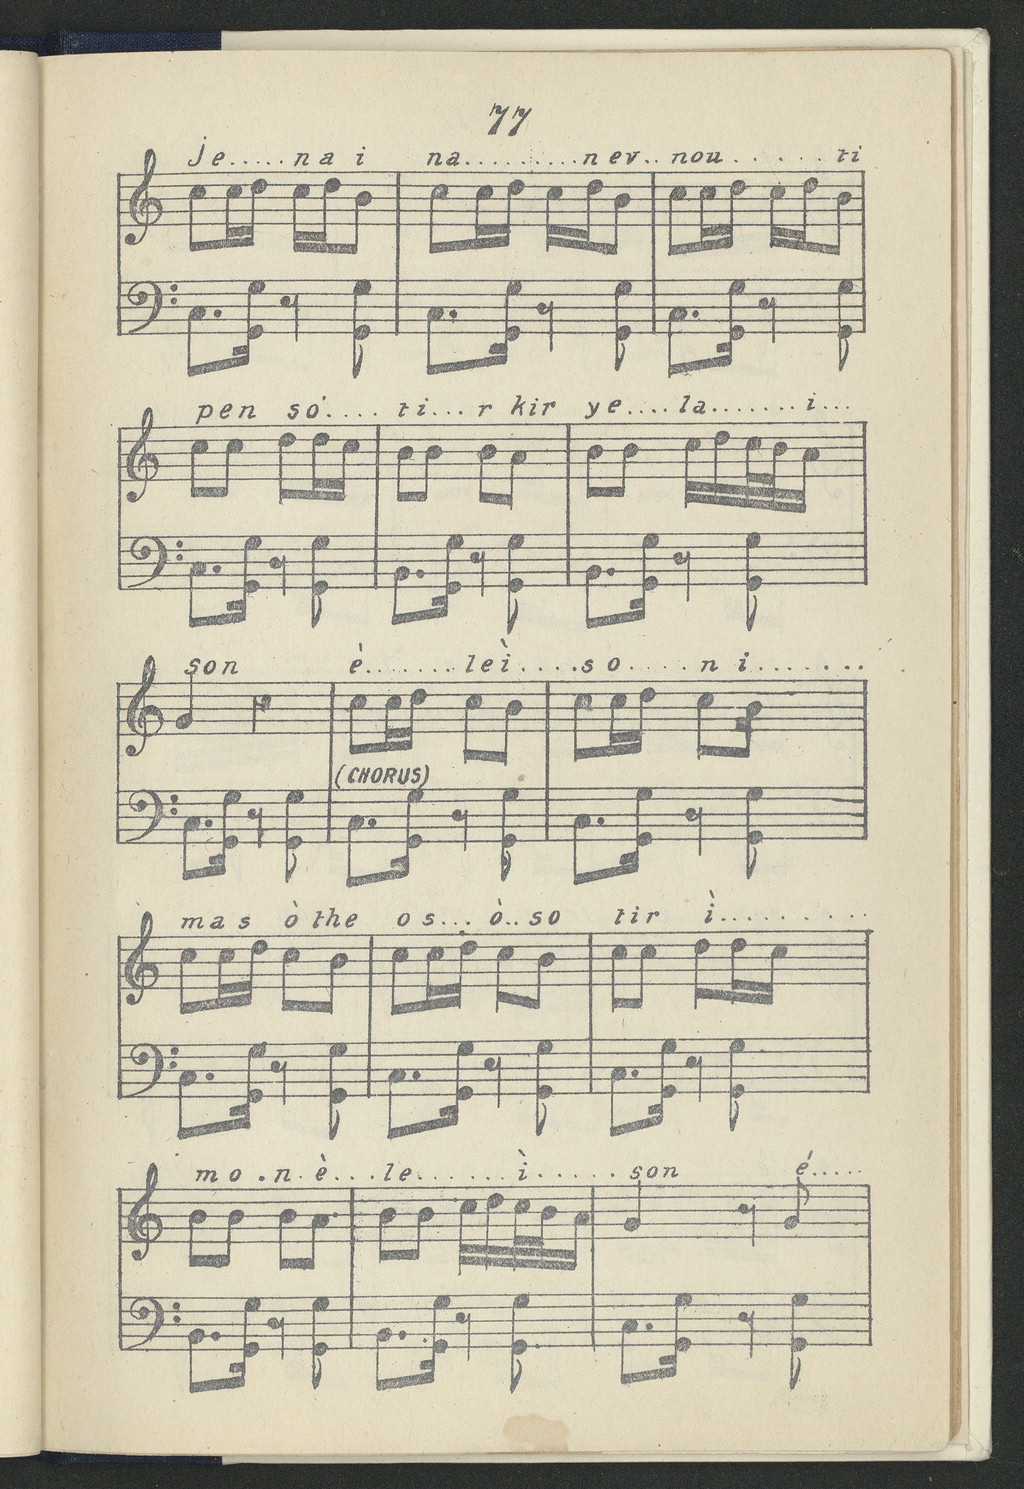 77
Je.....na i na..........nev..nou......ti
pen so'.... ti...r kir ye....la.......i...
son è........leì.....so.....n i.......
(CHORUS)
mas òthe os...ò..so tir ì.........
mo.n.è...le......ì......son é.....